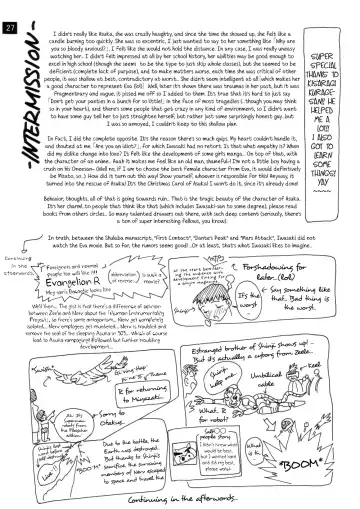 27
-INTERMISSION-
I didn't really like Asuka, she was cruelly haughty, and since the time she showed up, she felt like a
candle burning too quickly. She was so eccentric, I just wanted to say to her something like "Why are
you so bloody anxious?;. I felt like she would not hold the distance. In any case, I was really uneasy
watching her. I didn't feel impressed at all by her school history, her abilities may be good enough to
excel in high school (though she seems to be the type to just skip whole classes), but she seemed to be
deficient (complete lack of purpose), and to make matters worse, each time she was critical of other
people, it was shallow at best, contradictory at worst. She didn't seem intelligent at all (which makes her
a good character to represent Eva (lol)). Well, later it's shown there was traumas in her past, but it was
fragmentary and vague, it pissed me off so I added to them. It's true that it's hard to just say
"Don't get your panties in a bunch for so little!; in the face of moes tragedies (, though you may think
so in your heart), and there's some people that get crazy in any kind of environment, so I didn't want
to have some guy tell her to just straighten herself, but rather just some surprisingly honest guy, but
I was so annoyed, I couldn't keep to this shallow plan.
In fact, I did the complete opposite. It's the reason there's so much guys. My heart couldn't handle it,
and shouted at me "Are you an idiot?;, for which Iwasaki had no retort. Is that what empathy is? When
did my dislike change into love? It felt like the development of some girls manga. On top of that, with
the character of an anime. Aaah it makes me feel like an old man, shameful! I'm not a little boy having a
crush on his Oneesan~ (Well no, if I am to choose the best female character from Eva, it would definitively
be Misato, so.) How did it turn out this way! Show yourself, whoever is responsible for this! Anyway, it
turned into the rescue of Asuka! It's the Christmas Carol of Asuka! I won't do it, since it's already done!
Behavior, thoughts, all of that is going towards ruin.. That is the tragic beauty of the character of Asuka.
It's her charm! So people that think like that (which includes Iwasaki-san to some degree), please read
books from others circles.. So many talented drawers out there, with such deep contents (seriously, there's
a ton of super interesting fellows, you know).
SUPER
SPECIAL
THANKS TO
KISARAGI
KARAGE-
SAN! HE
HELPED
ME A
LOT!
I ALSO
GOT TO
LEARN
SOME
THINGS!!
YAY
~~~
In truth, between the Shakaba manuscripts, "First Contacts", "Dantari Peak" and "Mars Attack", Iwasaki did not
watch the Eva movie. But so far, the rumors seems good! ..Or at least, that's what Iwasaki likes to imagine.
Continuing
in the
afterwords..
Evangelion R
Well then... The gist is that there's a difference of opinion
between Zeele and Nerv about the «Human Instrumentality
Project», so there's some antagonism.. Nerv get completely
isolated... Nerv employees get murdered... Nerv is troubled and
remove the seal of the sleeping Asuka in 303.. Which of course
lead to Asuka rampaging! Followed but further troubling
development...
Shinji
It's the
worst
Forshadowing for
later..(lol)
Say something like
that.. Bad thing is
the worst.
R for returning
to Miyazaki..
Sorry to
Otakus.
Due to the battle, the
Earth was destroyed.
But thanks to Shinji's
sacrifice the surviving
members of Nerv escaped
to space and travel the
"BOOM"
Estranged brother of Shinji shows up!
But it's actually a cyborg from Zeele..
Umbilical
cable
Keel
What.. R
for robot?
What
is th..
"BOOM"
Continuing in the afterwords...